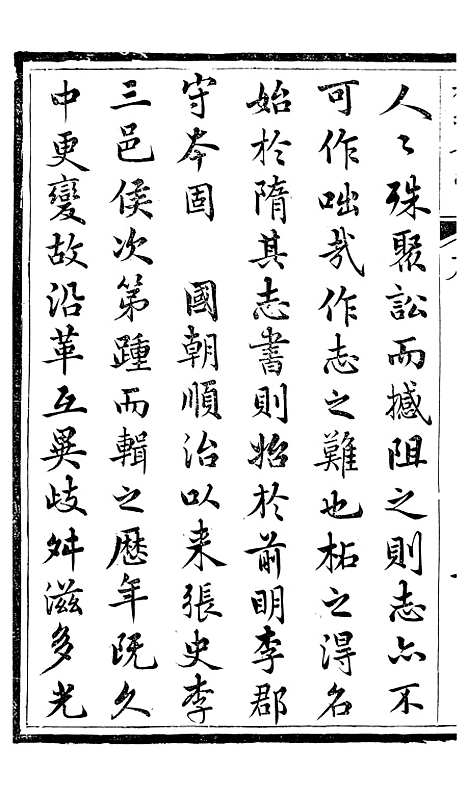 人〻殊聚訟而撼阻之則志亦不
可作咄哉作志之難也柘之淂名
始於隋其志書則始於前明李郡
守本固　國朝順治以来張史李
三邑侯次第踵而輯之歴年既久
中更變故沿革互異歧舛滋多光